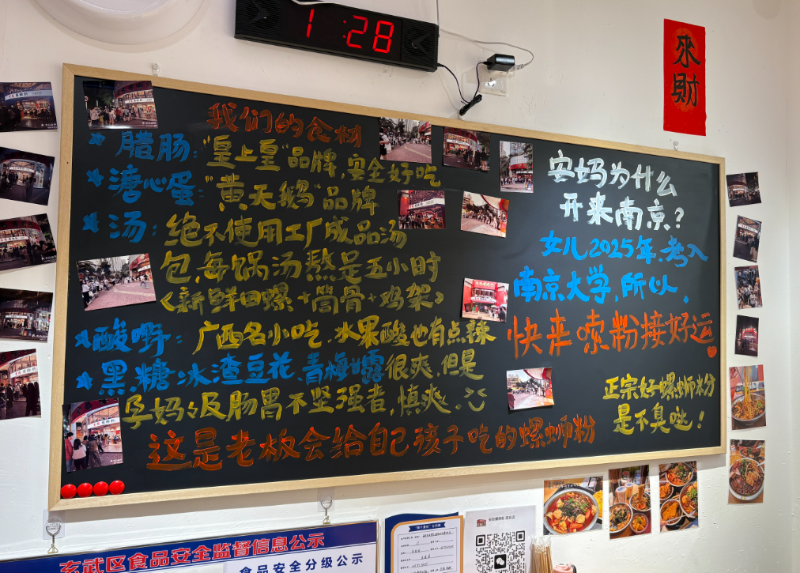 1:28
來財
我们的食材
腊肠:"皇上皇"品牌,安全好吃
溏心蛋:"黄天鹅"品牌
汤:绝不使用工厂成品汤
包,每锅汤熬足五小时
《新鲜田螺+筒骨+鸡架》
酸嘢:广西名小吃,水果酸也有点辣
黑糖冰渣豆花,青梅 很爽,但是
孕妈及肠胃不坚强者,慎爽。
这是老板会给自己孩子吃的螺蛳粉
安妈为什么
开来南京?
女儿2025年,考入
南京大学,所以,
快来嗦粉接好运
正宗好螺蛳粉
是不臭哒!
玄武区食品安全监督信息公示
食品安全分级公示